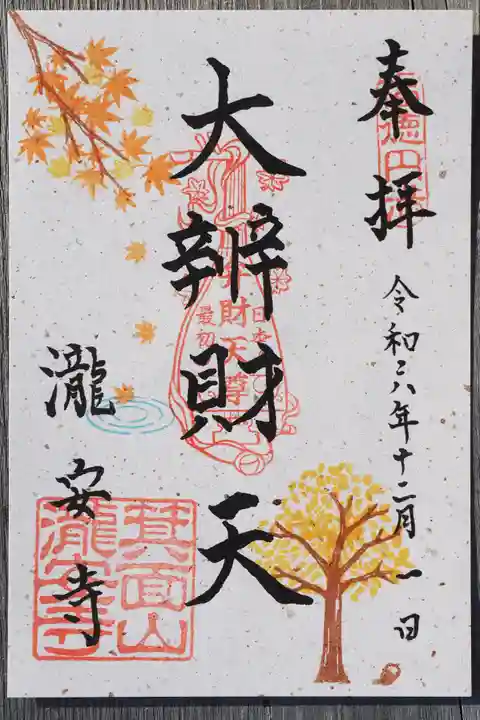 奉拝
令和六年十二月一日
大辨財天
日本最初
財天尊
瀧安寺
箕面山瀧安寺